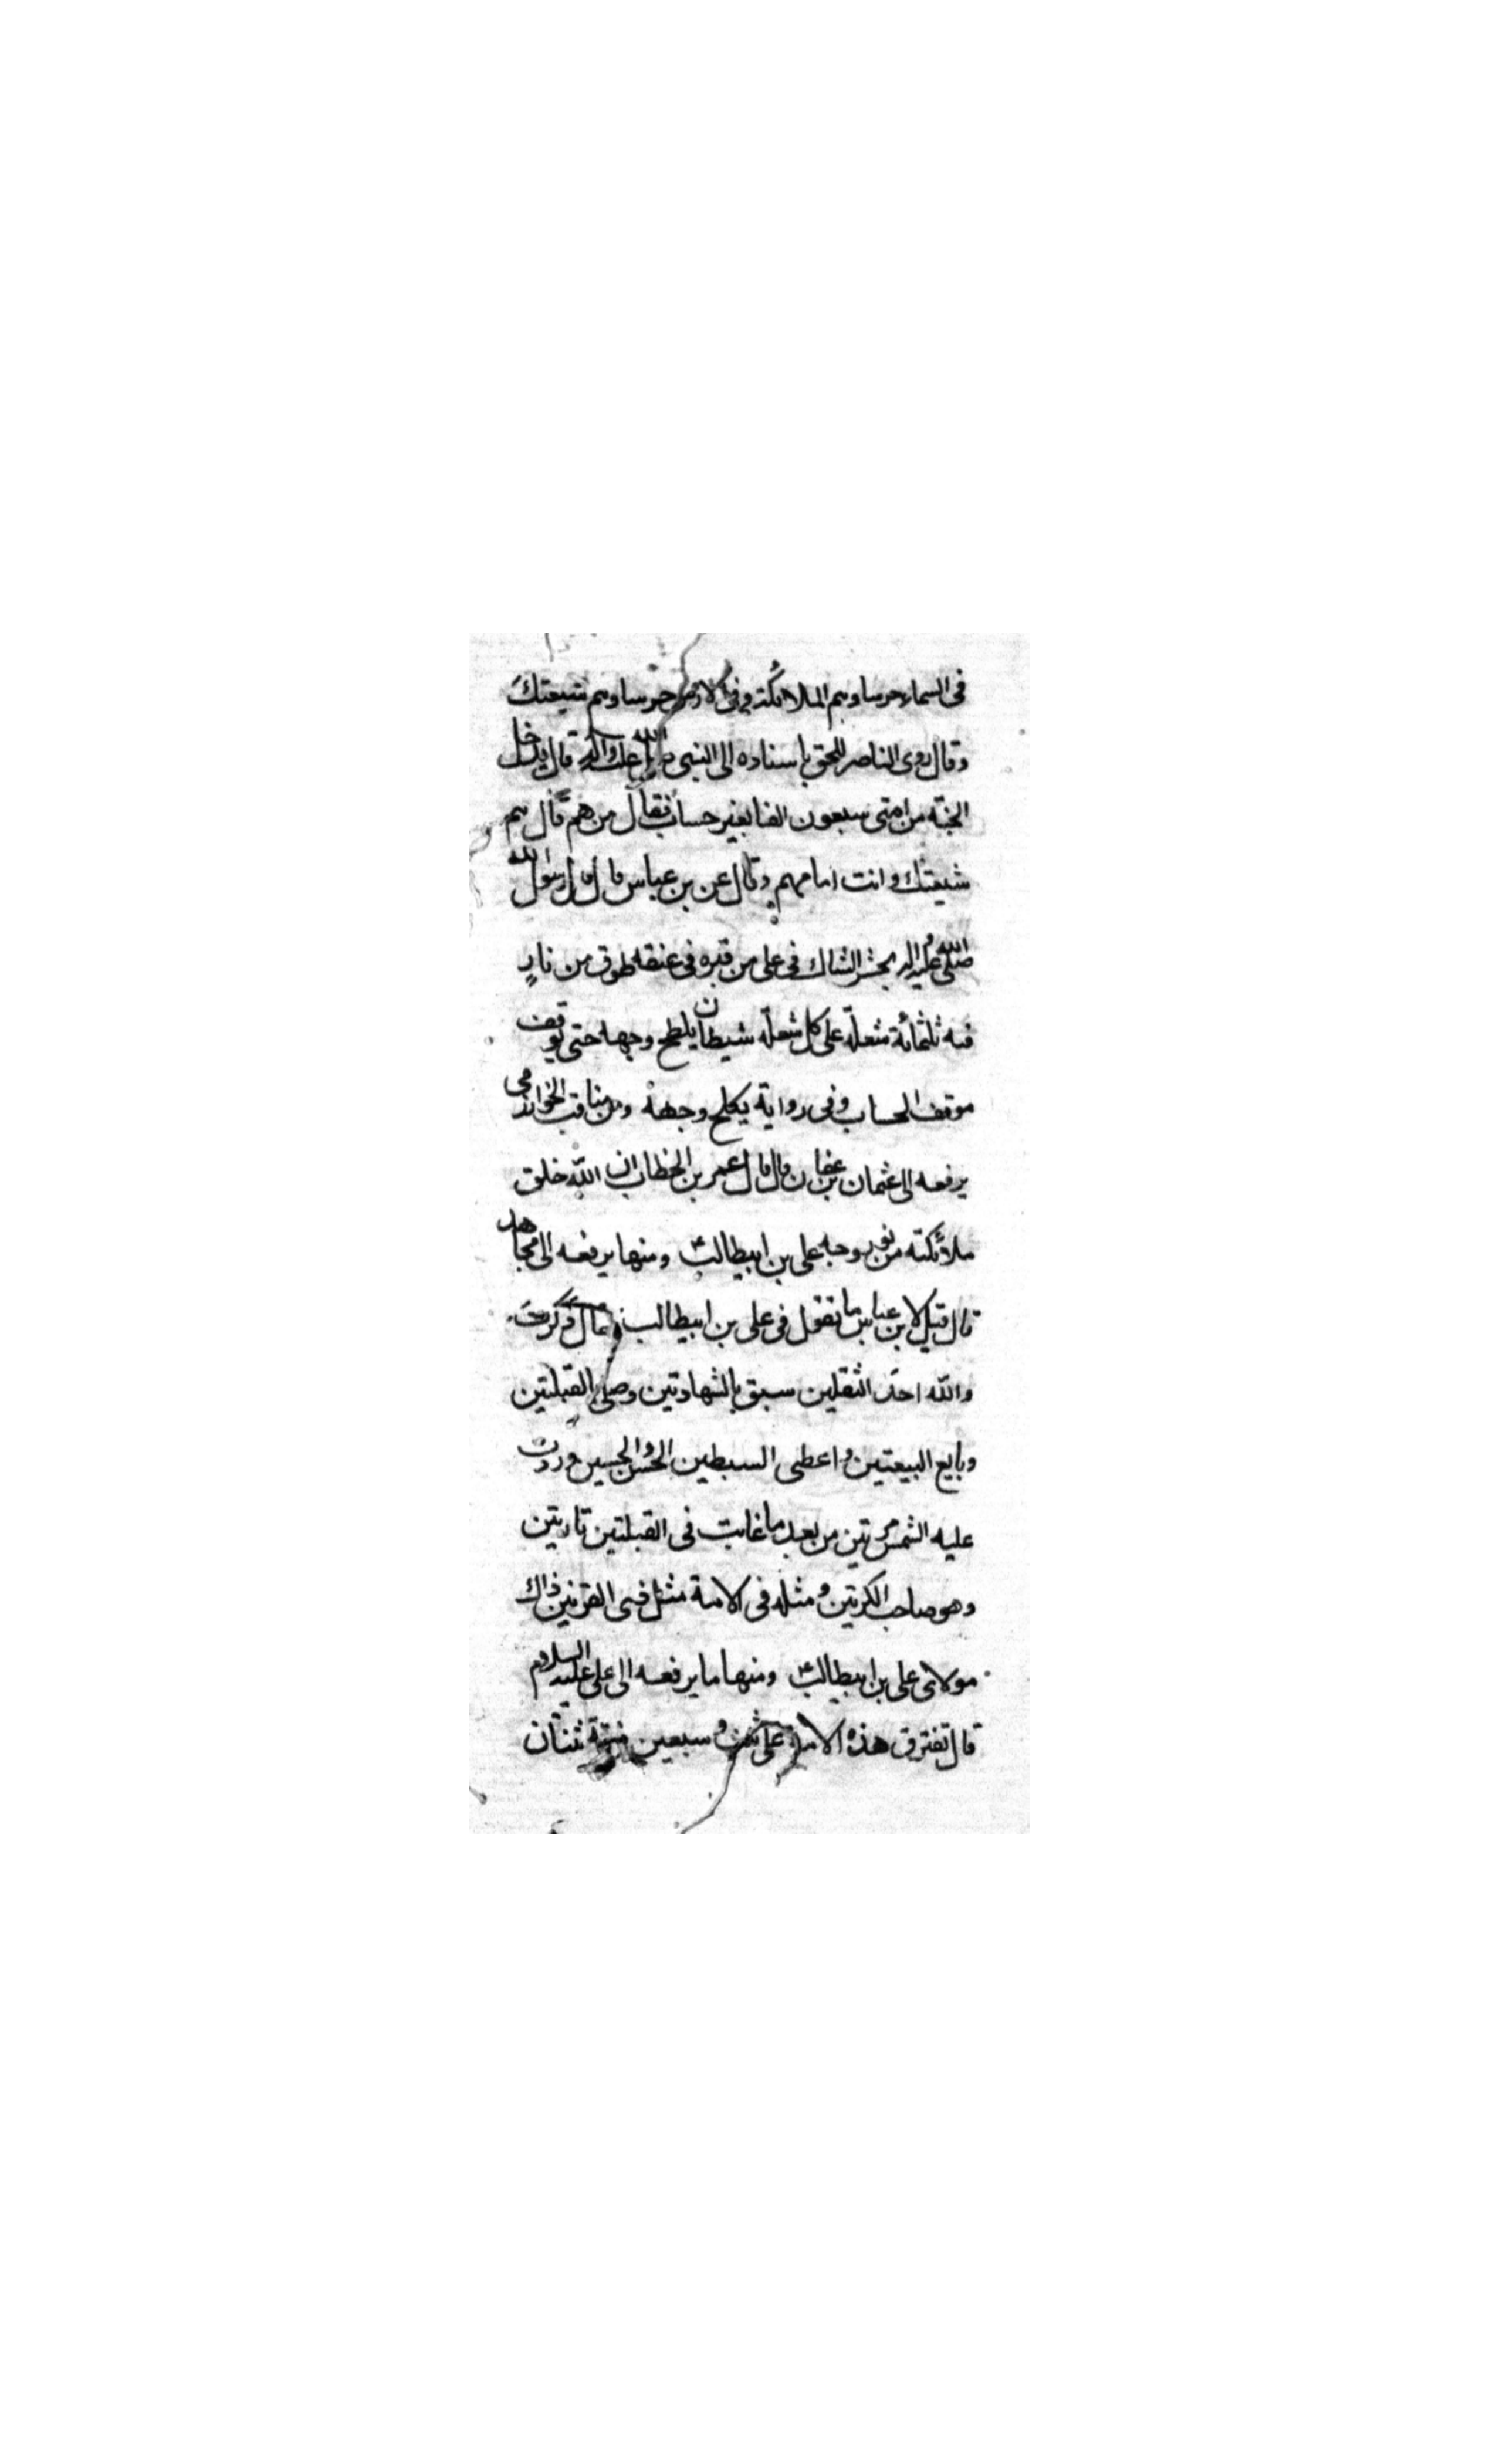 فى السماء حرسا وهم الملائكة وفى الارض حرسا وهم شيعتك
وقال روى الناصر للحق باسناده الى النبى صلى الله عليه وآله قال يدخل
الجنّه من امتى سبعون الفا بغير حساب فقال من هم قال هم
شيعتك وانت امامهم وقال عن بن عباس قال قال رسول الله
صلى الله عليه واله يحشر الشاك فى على من قبره فى عنقه طوق من نارٍ
فيه ثلثمائة شعلّة على كل شعلّه شيطان يلطخ وجهه حتى يوقف
موقف الحساب وفى رواية يكلح وجهه ومن مناقب الخوارزمى
يرفعه الى عثمان بن عفان قال قال عمر بن الخطاب ان اللّه خلق
ملائكته من نور وجه على بن ابيطالب ع ومنها يرفعه الى مجاهد
قال قيل لابن عباس ما تقول فى على بن ابيطالب فقال ذكرت
واللّه احد الثقلين سبق بالشهادتين وصلى بالقبلتين
وبايع البيعتين واعطى السبطين الحسن والحسين وردت
عليه الشمس مرتين من بعد ما غابت فى القبلتين تارتين
وهو صاحب الكرتين ومثله فى الامة مثل ذى القرنين ذاك
مولاى على بن ابيطالب ع ومنها ما يرفعه الى على عليه السلام
قال تفترق هذه الامة على ثلث وسبعين فرقة ثنتان